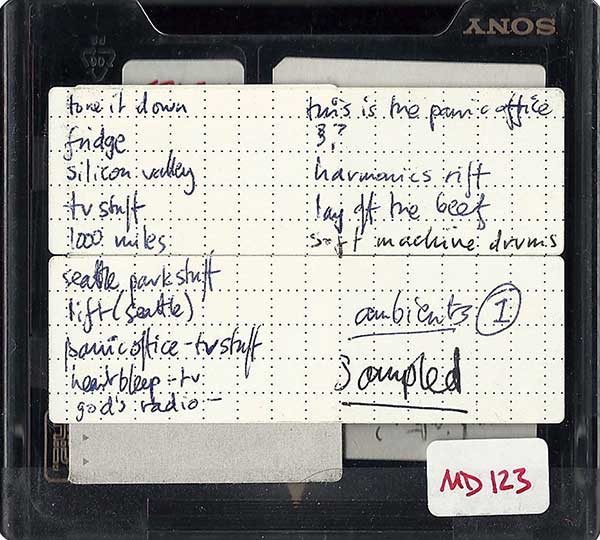 SONY
tone it down
fridge
silicon valley
tv stuff
1000 miles
this is the panic office
3?
harmonics rift
lay off the beef
soft machine drums
seattle park stuff
lift (seattle)
panic office - tv stuff
heart bleep - tv
god's radio -
ambients 1
Sampled
MD 123